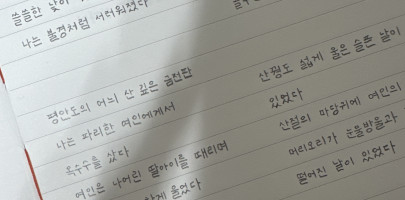 쓸쓸한 낯이
나는 불경처럼 서러워졌다
평안도의 어늬 산 깊은 금전판
나는 파리한 여인에게서
옥수수를 샀다
여인은 나어린 딸아이를 때리며
하게 울었다
산꿩도 섧게 울은 슬픈 날이
있었다
산절의 마당귀에 여인의
머리오리가 눈물방울과
떨어진 날이 있었다